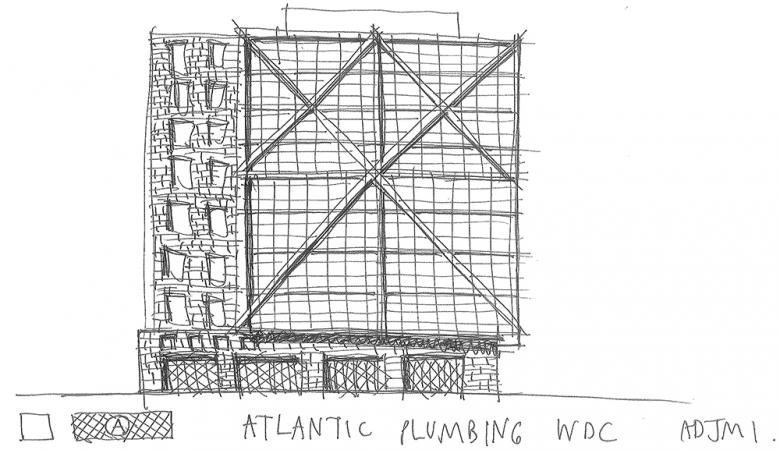 A ATLANTIC PLUMBING WDC ADJMI.